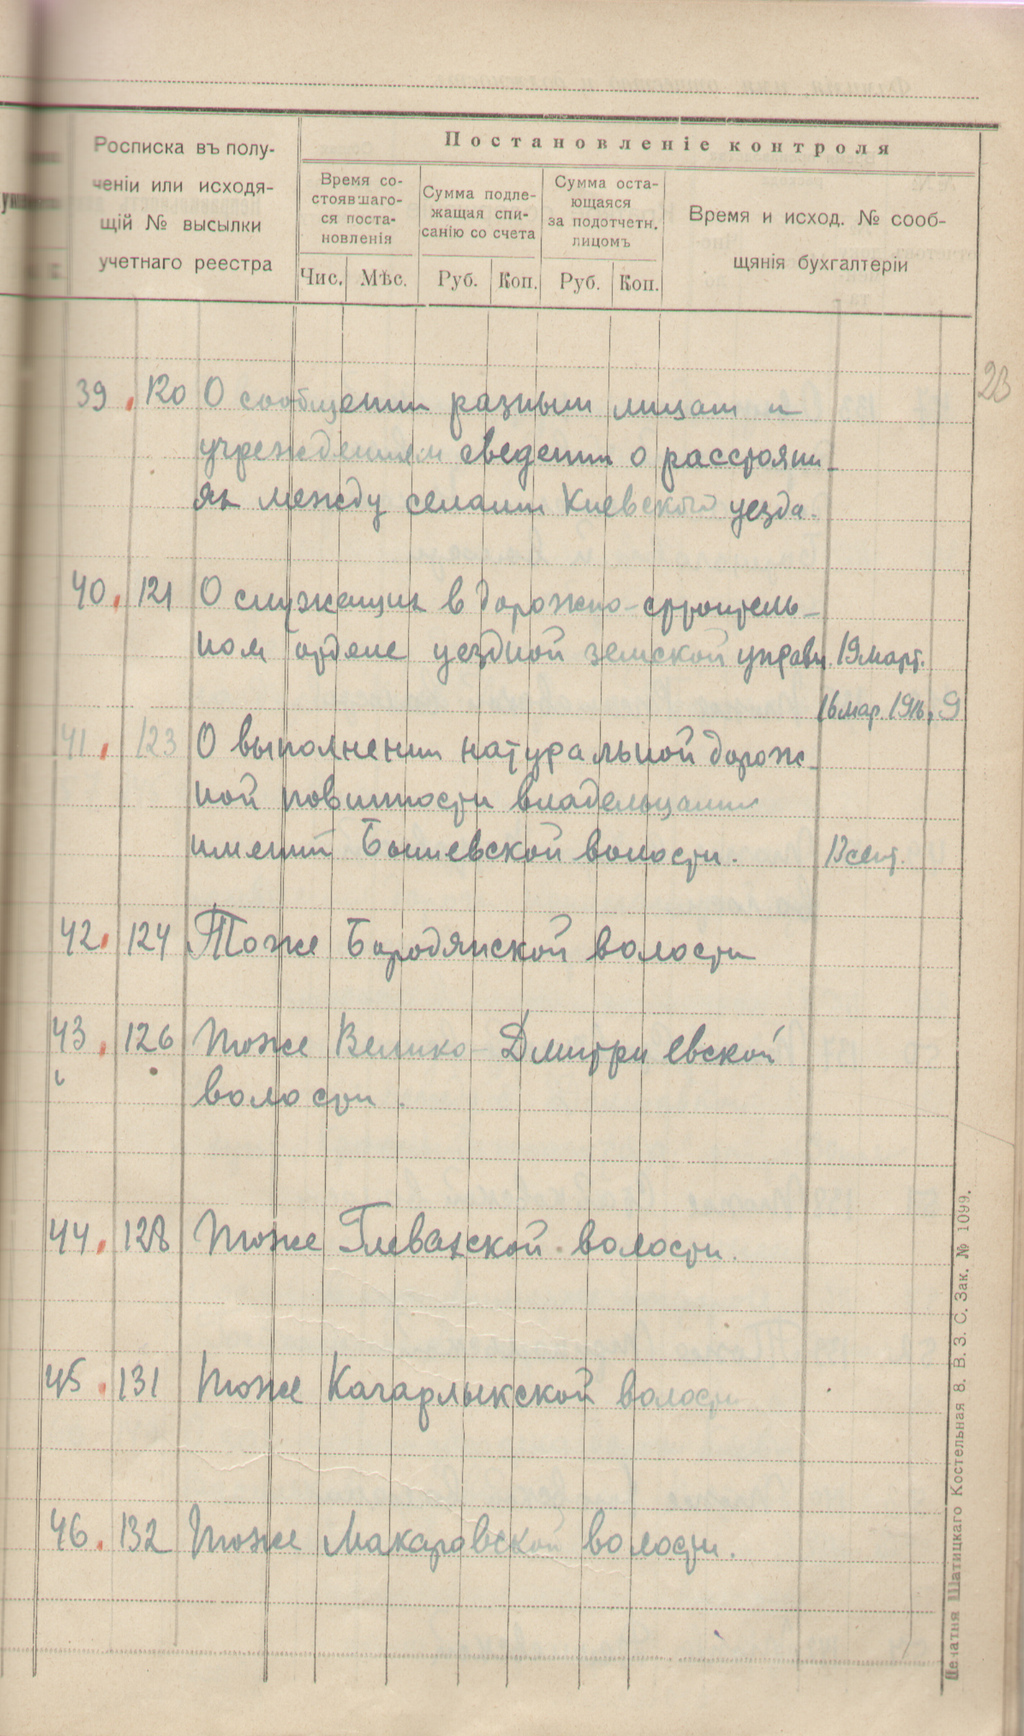 Росписка въ полу-
ченіи или исходя-
щій № высылки
учетнаго реестра
Постановленіе контроля
Время со-
стоявшаго-
ся поста-
новленія
Сумма подле-
жащая спи-
санію со счета
Сумма оста-
ющаяся
за подотчетн.
лицомъ
Время и исход. № сооб-
щянія бухгалтеріи
Чис. Мѣс. Руб. Коп. Руб. Коп.
23
39. 120 О сообщении разным лицам и
учреждениям сведении о расстояни-
ях между селами Киевского уезда.
40. 121 О служащих в дорожно-строитель-
ном отделе уездной земской управы 19 март.
16 мар. 1916, 9
41. 123 О выполнении натуральной дорож-
ной повинности владельцами
имений Бышевской волости. 13 сент.
42. 124 Тоже Бородянской волости
43. 126 тоже Велико-Дмитриевской
волости.
44. 128 тоже Глевахской волости.
45. 131 тоже Кагарлыкской волости
46. 132 тоже Макаровской волости.
Печатня Шатицкаго Костельная 8. В. З. С. Зак. № 1099.